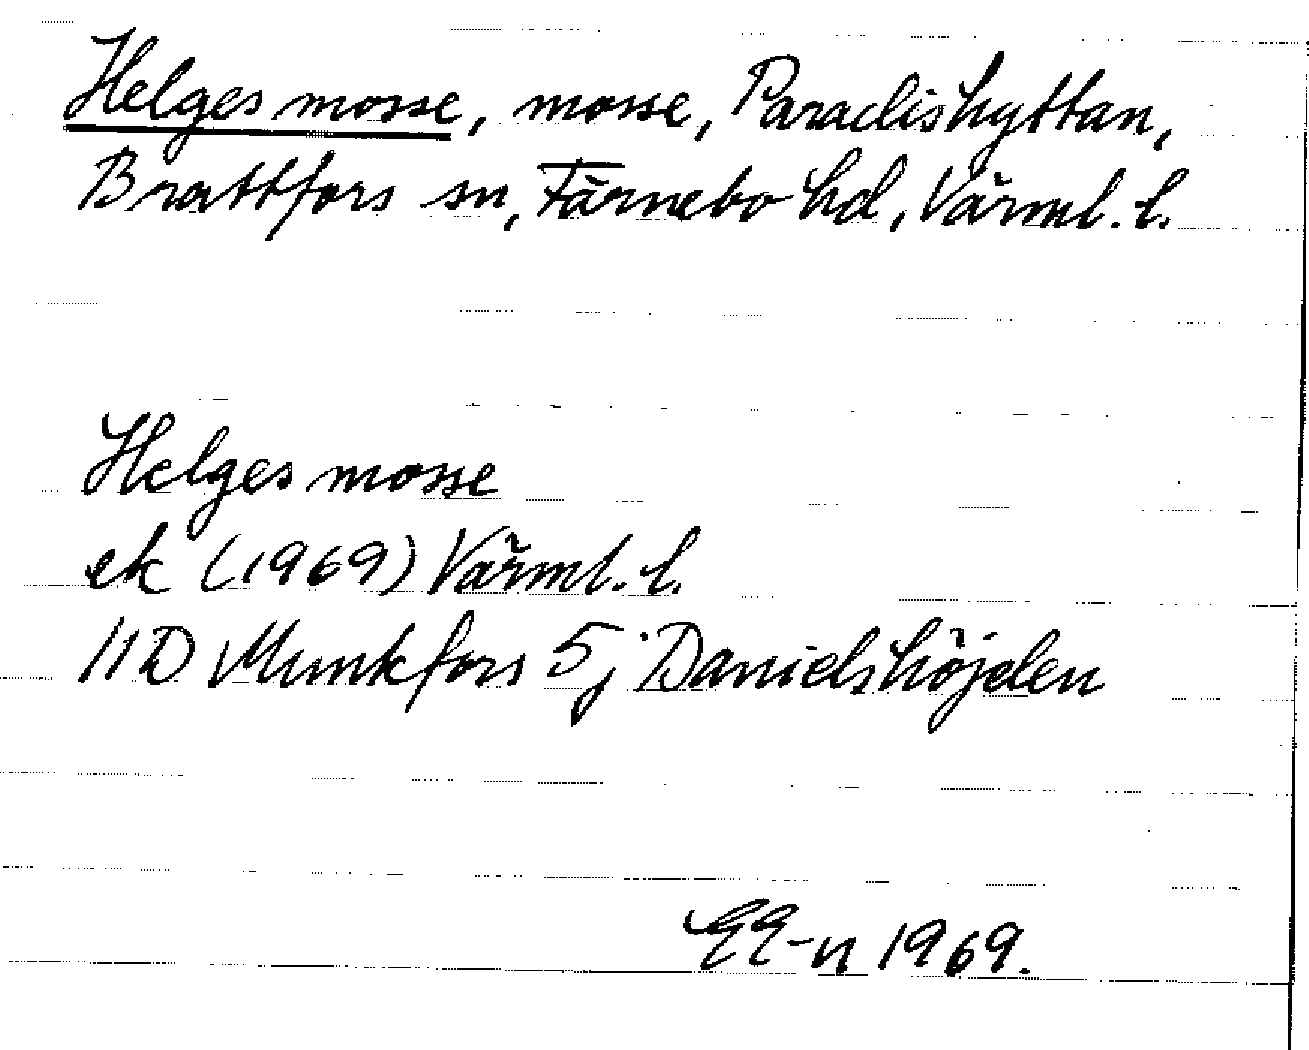 Helges mosse, mosse, Paradishyttan,
Brattfors sn, Färnebo hd, Värml. l.
Helges mosse
ek (1969) Värml. l.
11D Munkfors 5j Danielshöjden
EE-n 1969.